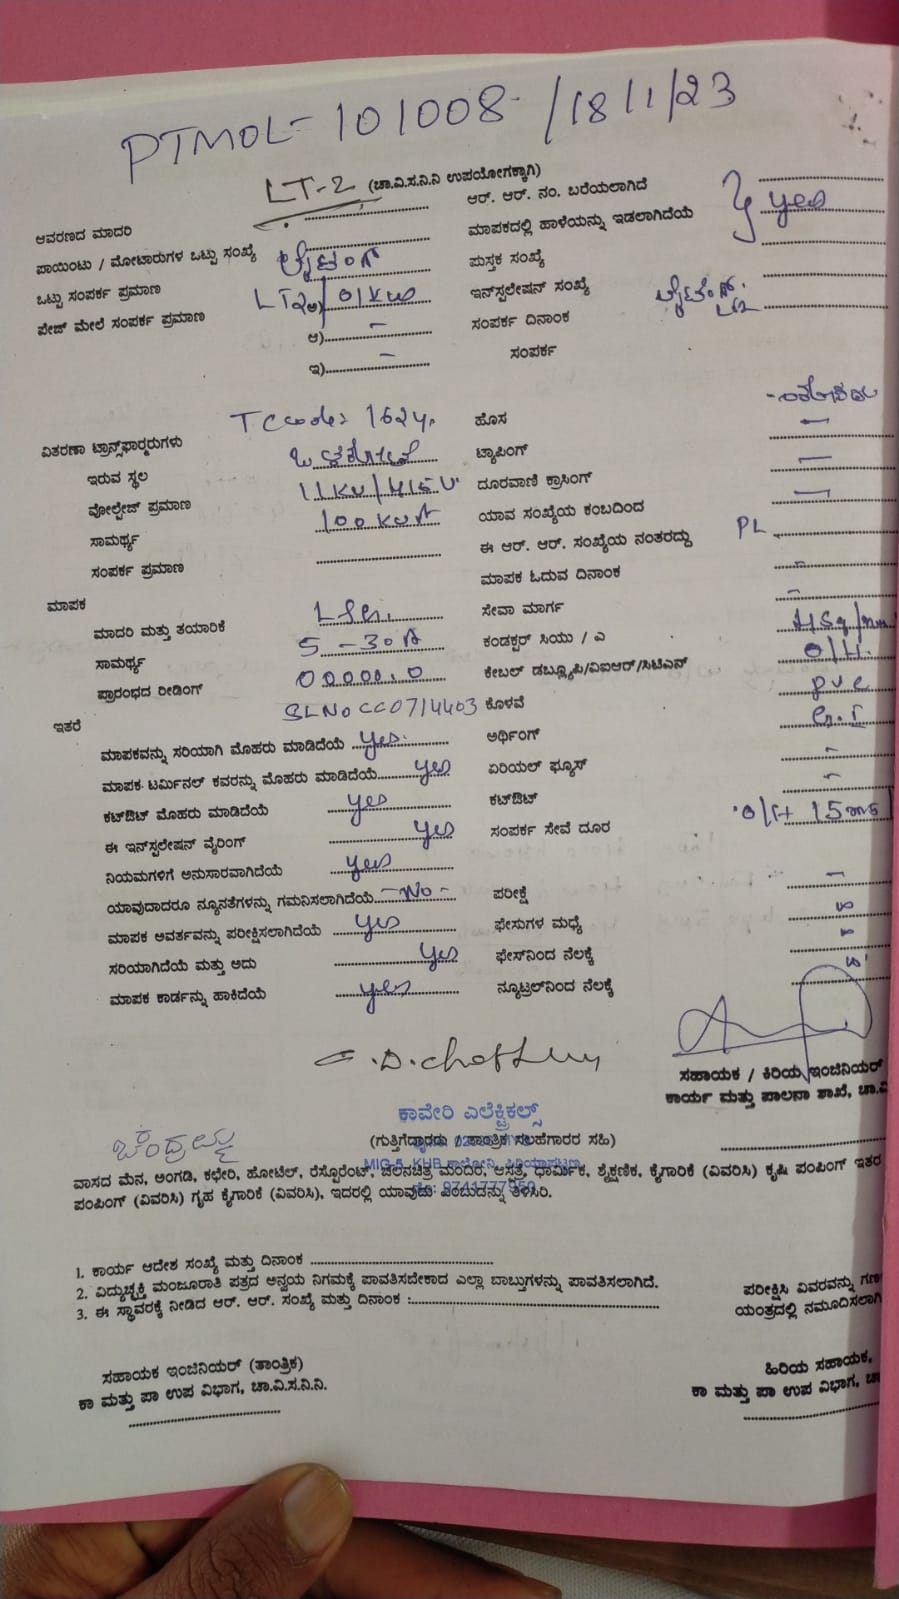 PTMOL-101008 /18/1/23
LT-2 (ಚಾ.ವಿ.ಸ.ನಿ.ನಿ ಉಪಯೋಗಕ್ಕಾಗಿ)
ಆವರಣದ ಮಾದರಿ
ಪಾಯಿಂಟು / ಮೋಟಾರುಗಳ ಒಟ್ಟು ಸಂಖ್ಯೆ
ಒಟ್ಟು ಸಂಪರ್ಕ ಪ್ರಮಾಣ ಲೈಟಿಂಗ್
ಪೇಜ್ ಮೇಲೆ ಸಂಪರ್ಕ ಪ್ರಮಾಣ LT2 ಅ) 01KW
ಆ) –
ಇ) –
ಆರ್. ಆರ್. ನಂ. ಬರೆಯಲಾಗಿದೆ
ಮಾಪಕದಲ್ಲಿ ಹಾಳೆಯನ್ನು ಇಡಲಾಗಿದೆಯೆ } yes
ಪುಸ್ತಕ ಸಂಖ್ಯೆ
ಇನ್‌ಸ್ಟಲೇಷನ್ ಸಂಖ್ಯೆ
ಸಂಪರ್ಕ ದಿನಾಂಕ ಲೈಟಿಂಗ್. LT2
ಸಂಪರ್ಕ
ವಿತರಣಾ ಟ್ರಾನ್ಸ್‌ಫಾರ್ಮರುಗಳು TCcode: 1624.
ಇರುವ ಸ್ಥಳ
ವೋಲ್ಟೇಜ್ ಪ್ರಮಾಣ 11KV/415V
ಸಾಮರ್ಥ್ಯ 100KVA
ಸಂಪರ್ಕ ಪ್ರಮಾಣ
ಹೊಸ
ಟ್ಯಾಪಿಂಗ್ –
ದೂರವಾಣಿ ಕ್ರಾಸಿಂಗ್ –
ಯಾವ ಸಂಖ್ಯೆಯ ಕಂಬದಿಂದ –
ಈ ಆರ್. ಆರ್. ಸಂಖ್ಯೆಯ ನಂತರದ್ದು PL
ಮಾಪಕ ಓದುವ ದಿನಾಂಕ –
ಮಾಪಕ
ಮಾದರಿ ಮತ್ತು ತಯಾರಿಕೆ
ಸಾಮರ್ಥ್ಯ 5-30A
ಪ್ರಾರಂಭದ ರೀಡಿಂಗ್ 00000.0
SLNo CC0714403
ಸೇವಾ ಮಾರ್ಗ –
ಕಂಡಕ್ಟರ್ ಸಿಯು / ಎ
ಕೇಬಲ್ ಡಬ್ಲ್ಯೂಪಿ/ವಿಐಆರ್/ಸಿಟಿಎಸ್ O/H.
ಕೊಳವೆ PVC
ಇತರೆ
ಮಾಪಕವನ್ನು ಸರಿಯಾಗಿ ಮೊಹರು ಮಾಡಿದೆಯೆ yes.
ಮಾಪಕ ಟರ್ಮಿನಲ್ ಕವರನ್ನು ಮೊಹರು ಮಾಡಿದೆಯೆ yes
ಕಟ್‌ಔಟ್ ಮೊಹರು ಮಾಡಿದೆಯೆ yes
ಈ ಇನ್‌ಸ್ಟಲೇಷನ್ ವೈರಿಂಗ್ yes
ನಿಯಮಗಳಿಗೆ ಅನುಸಾರವಾಗಿದೆಯೆ yes
ಯಾವುದಾದರೂ ನ್ಯೂನತೆಗಳನ್ನು ಗಮನಿಸಲಾಗಿದೆಯೆ -No-
ಮಾಪಕ ಅವರ್ತವನ್ನು ಪರೀಕ್ಷಿಸಲಾಗಿದೆಯೆ yes
ಸರಿಯಾಗಿದೆಯೆ ಮತ್ತು ಅದು yes
ಮಾಪಕ ಕಾರ್ಡನ್ನು ಹಾಕಿದೆಯೆ yes
ಅರ್ಥಿಂಗ್ G.I
ಏರಿಯಲ್ ಫ್ಯೂಸ್ –
ಕಟ್‌ಔಟ್ –
ಸಂಪರ್ಕ ಸೇವೆ ದೂರ O/H 15mts
ಪರೀಕ್ಷೆ
ಫೇಸುಗಳ ಮಧ್ಯೆ
ಫೇಸ್‌ನಿಂದ ನೆಲಕ್ಕೆ
ನ್ಯೂಟ್ರಲ್‌ನಿಂದ ನೆಲಕ್ಕೆ
ಸಹಾಯಕ / ಕಿರಿಯ ಇಂಜಿನಿಯರ್
ಕಾರ್ಯ ಮತ್ತು ಪಾಲನಾ ಶಾಖೆ, ಚಾ.ವಿ
ಕಾವೇರಿ ಎಲೆಕ್ಟ್ರಿಕಲ್ಸ್
(ಗುತ್ತಿಗೆದಾರರು / ತಾಂತ್ರಿಕ ಸಲಹೆಗಾರರ ಸಹಿ)
MIG-5, KHB ಕಾಲೋನಿ, ಪಿರಿಯಾಪಟ್ಟಣ
ವಾಸದ ಮನೆ, ಅಂಗಡಿ, ಕಛೇರಿ, ಹೋಟೆಲ್, ರೆಸ್ಟೊರೆಂಟ್, ಚಲನಚಿತ್ರ ಮಂದಿರ, ಆಸ್ಪತ್ರೆ, ಧಾರ್ಮಿಕ, ಶೈಕ್ಷಣಿಕ, ಕೈಗಾರಿಕೆ (ವಿವರಿಸಿ) ಕೃಷಿ ಪಂಪಿಂಗ್ ಇತರ
ಪಂಪಿಂಗ್ (ವಿವರಿಸಿ) ಗೃಹ ಕೈಗಾರಿಕೆ (ವಿವರಿಸಿ), ಇದರಲ್ಲಿ ಯಾವುದು ಎಂಬುದನ್ನು ತಿಳಿಸಿರಿ.
1. ಕಾರ್ಯ ಆದೇಶ ಸಂಖ್ಯೆ ಮತ್ತು ದಿನಾಂಕ
2. ವಿದ್ಯುಚ್ಛಕ್ತಿ ಮಂಜೂರಾತಿ ಪತ್ರದ ಅನ್ವಯ ನಿಗಮಕ್ಕೆ ಪಾವತಿಸಬೇಕಾದ ಎಲ್ಲಾ ಬಾಬ್ತುಗಳನ್ನು ಪಾವತಿಸಲಾಗಿದೆ.
3. ಈ ಸ್ಥಾವರಕ್ಕೆ ನೀಡಿದ ಆರ್. ಆರ್. ಸಂಖ್ಯೆ ಮತ್ತು ದಿನಾಂಕ :
ಪರೀಕ್ಷಿಸಿ ವಿವರವನ್ನು ಗಣ
ಯಂತ್ರದಲ್ಲಿ ನಮೂದಿಸಲಾಗಿ
ಸಹಾಯಕ ಇಂಜಿನಿಯರ್ (ತಾಂತ್ರಿಕ)
ಕಾ ಮತ್ತು ಪಾ ಉಪ ವಿಭಾಗ, ಚಾ.ವಿ.ಸ.ನಿ.ನಿ.
ಹಿರಿಯ ಸಹಾಯಕ,
ಕಾ ಮತ್ತು ಪಾ ಉಪ ವಿಭಾಗ, ಚಾ